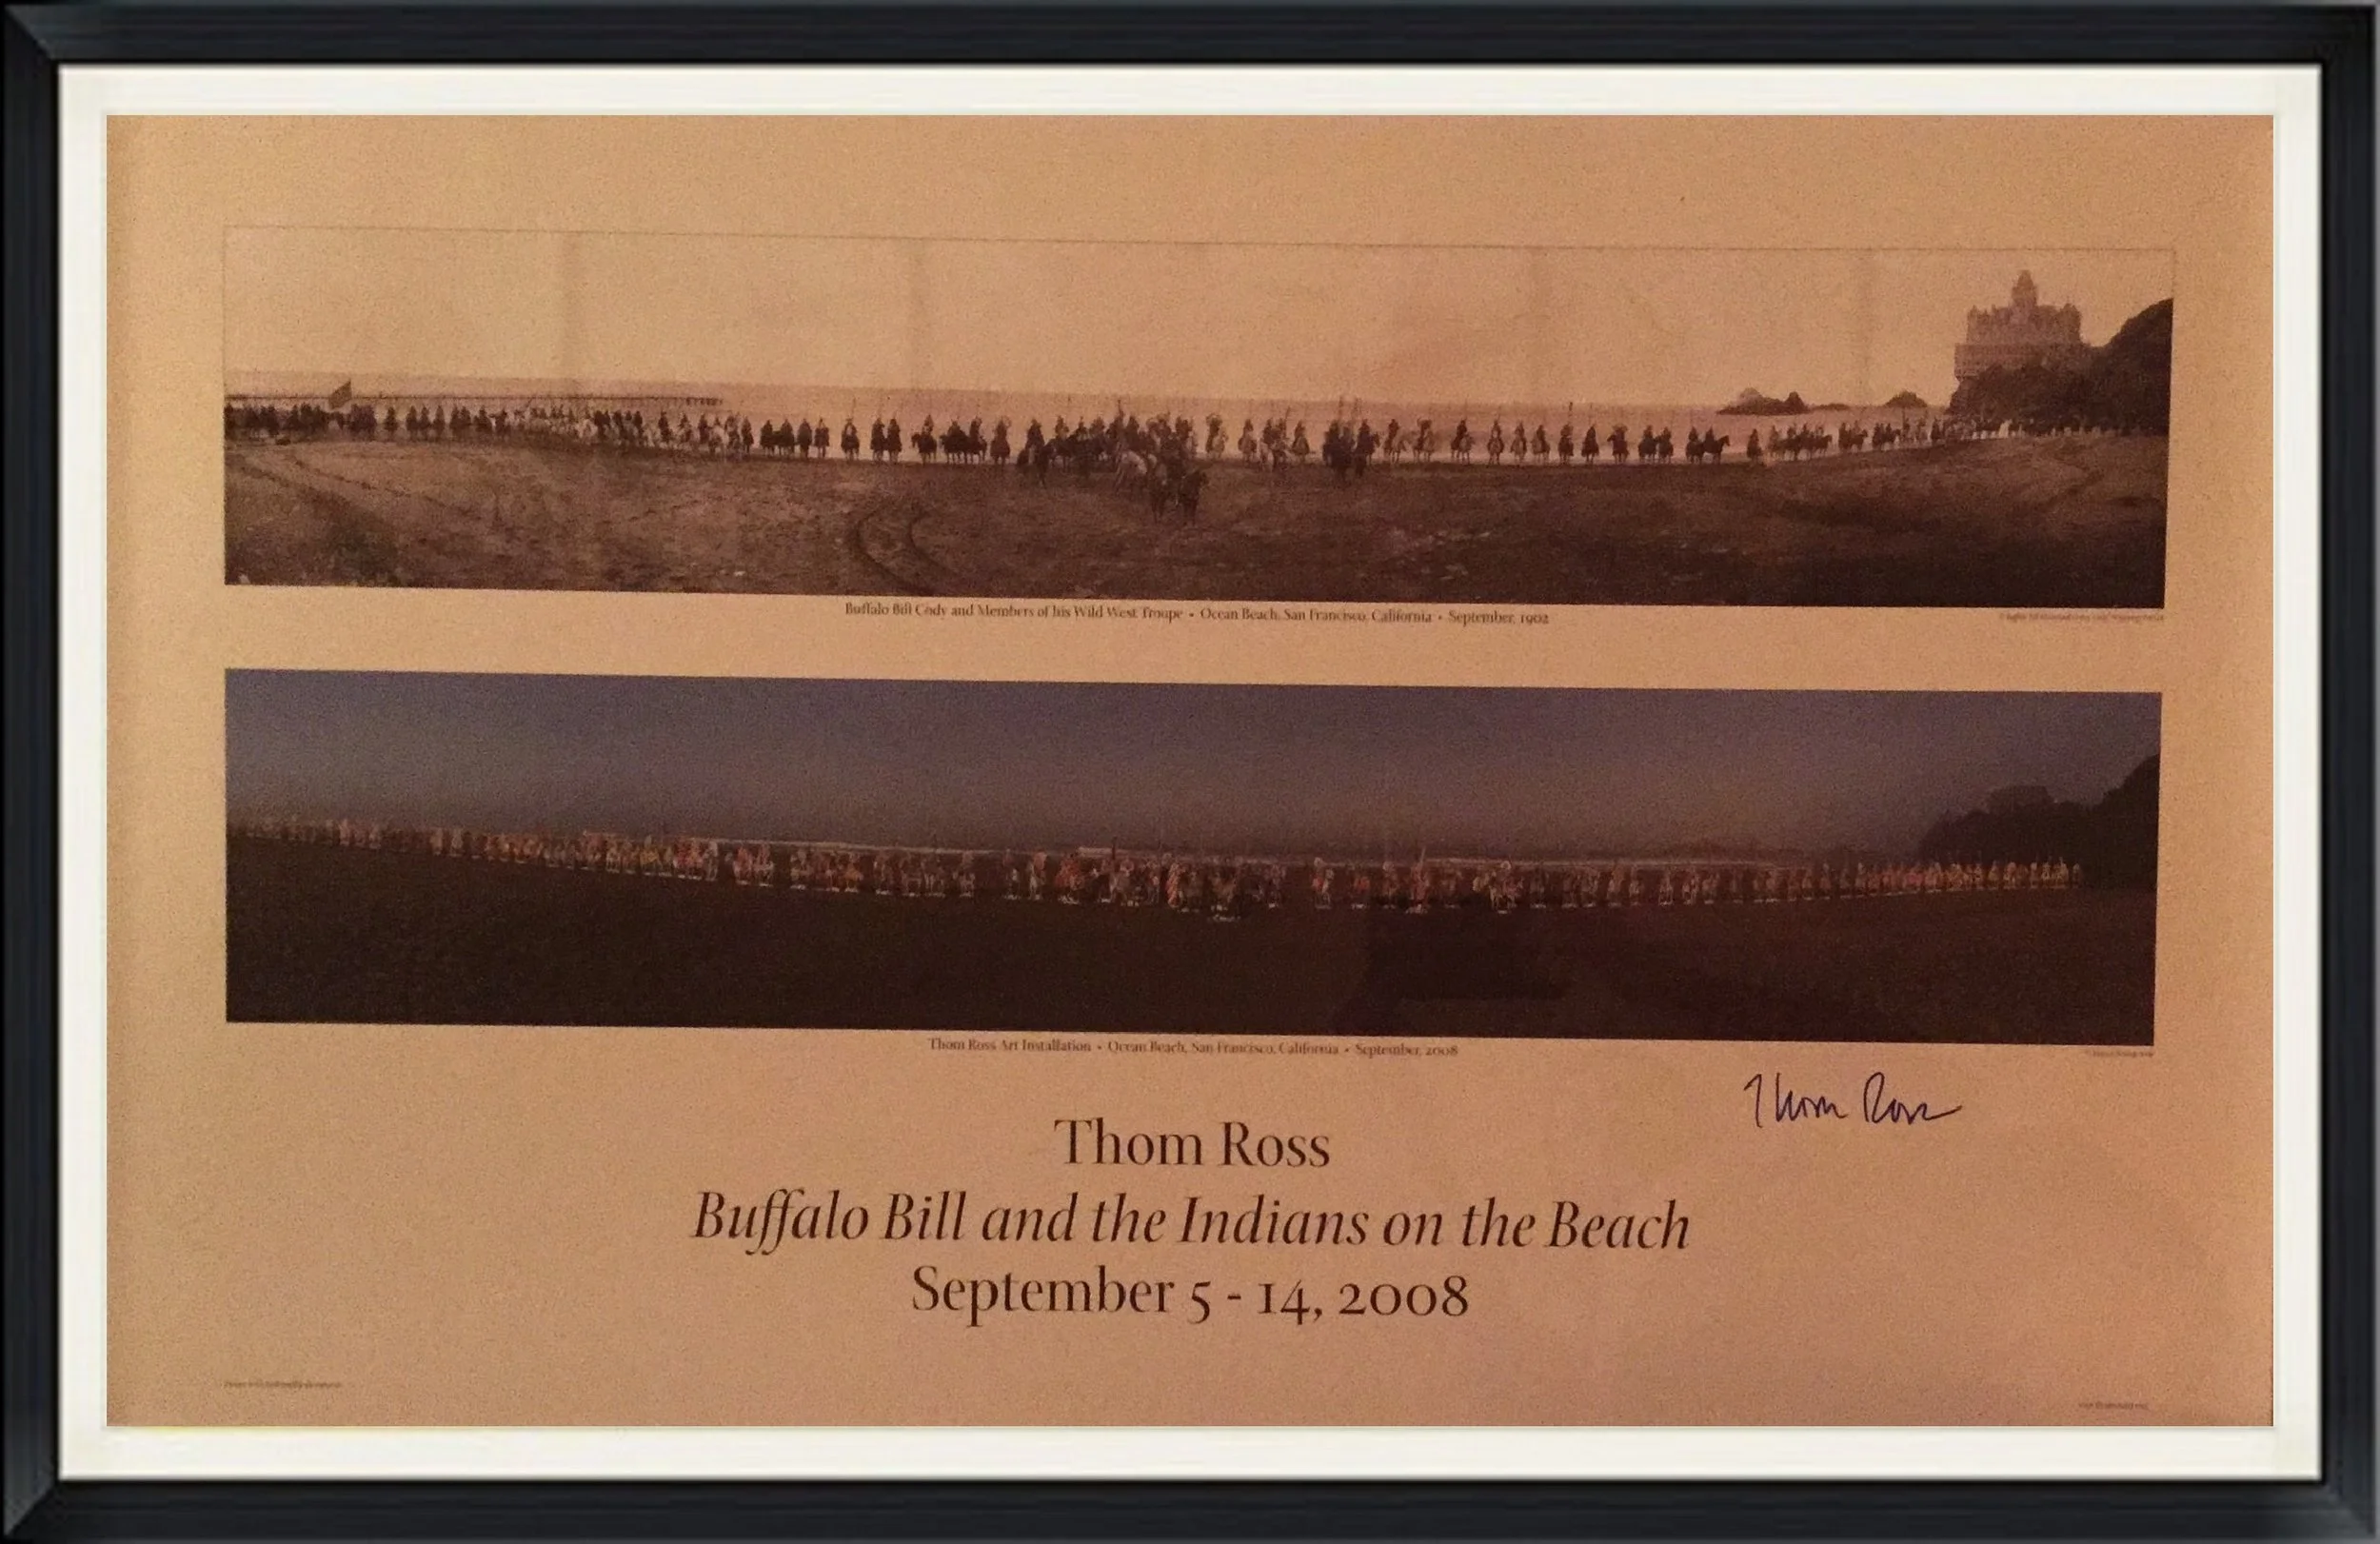 Buffalo Bill Cody and Members of his Wild West Troupe • Ocean Beach, San Francisco, California • September, 1902
Thom Ross Art Installation • Ocean Beach, San Francisco, California • September, 2008
Thom Ross
Thom Ross
Buffalo Bill and the Indians on the Beach
September 5 - 14, 2008